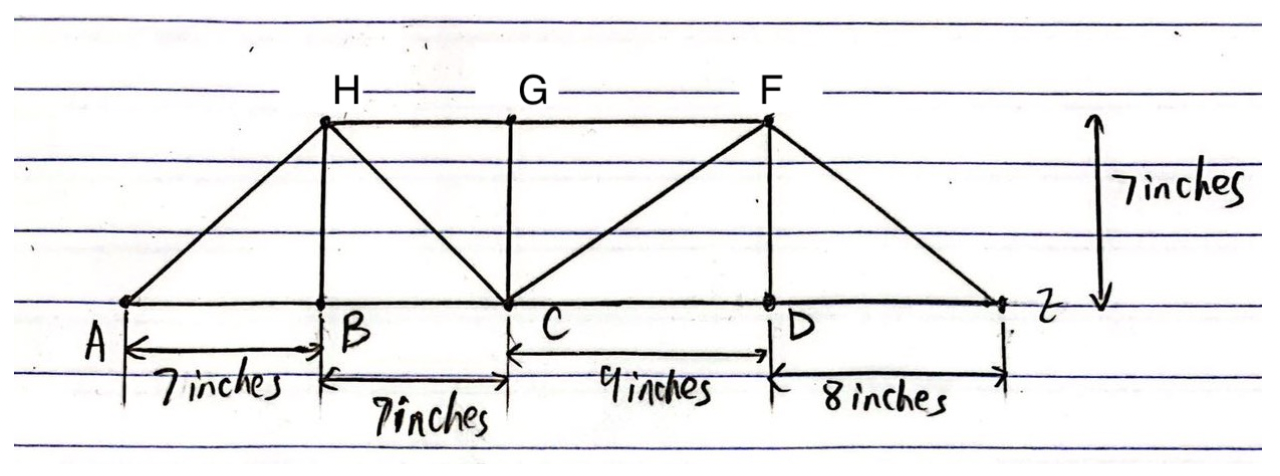 H G F
7inches
A B C D Z
7inches
7inches
9inches
8inches